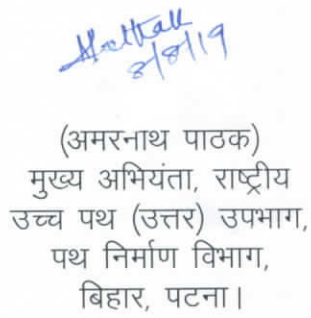 8/8/19
(अमरनाथ पाठक)
मुख्य अभियंता, राष्ट्रीय
उच्च पथ (उत्तर) उपभाग,
पथ निर्माण विभाग,
बिहार, पटना।